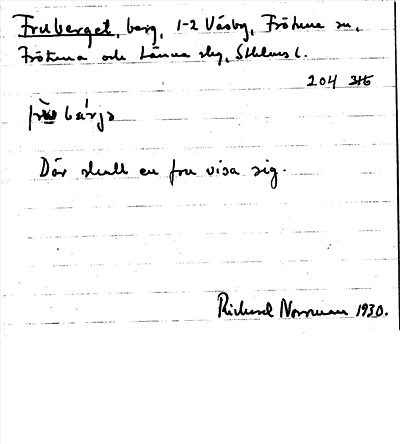 Fruberget, berg, 1-2 Väsby, Frötuna sn,
Frötuna och Länna skg, Sthlms l.
204 316
bärjə
Där skall en fru visa sig.
Richard Norrman 1930.